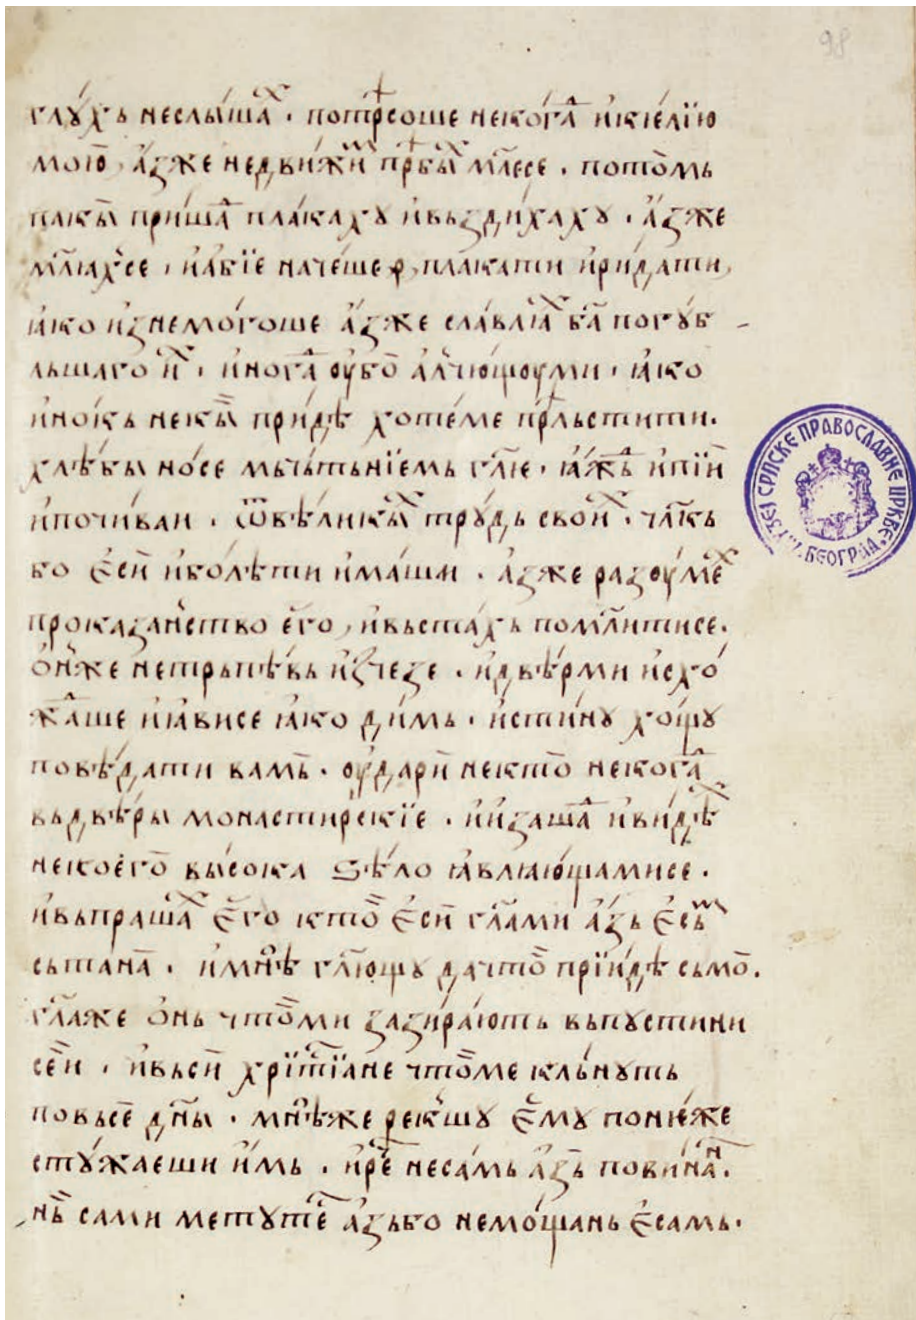 98
глꙋ́хь неслы́шаⷯ . потрⷭ҇соше некогⷣа и҆кїелїю
мою̀ , а҆́зже недви́жиⷨ прⷣбы́ⷯ мл҃есе . пото̀мь
пакы̀ прише́ⷣ пла́каахꙋ и҆вьздиха́хꙋ . а҆́зже
мл҃ꙗхсе . и҆а҆́бїе наче́ше плакати и҆ридати ,
ꙗ҆́ко и҆знемо́гоше а҆́зже сла́влꙗⷯ ба҃ погꙋ́б
льшаго и҆ⷯ . и҆ногⷣа ᲂу҆бо̀ а҆́лчющоуми . ꙗ҆́ко
и҆но́кь некы̀ прїи́дѣ хоте́ме прⷣльстити .
хлѣ́бы но́се мьчьтьнїемь гл҃ѥ . ꙗ҆́ждь и҆пїѝ
и҆почива́и . ѿве́ликыⷯ трꙋ́дь свои́ⷯ . чл҃кь
бо є҆сѝ и҆болѣ́ти и҆́маши . а҆́зже разоумѣⷯ
прока́занство є҆го̀ , и҆вьста́хь помл҃итисе .
ѡ҆́нже нетрьпѣ́вь и҆счезе . и҆двѣ́рми и҆схо
жⷣа́ше и҆ꙗ҆́висе ꙗ҆́ко ди́мь . и҆́стинꙋ хо́щꙋ
повѣ́дати ва́мь . ᲂу҆да́ри некто̀ некогⷣа
вьдвѣ́ры монасти́рскїе . и҆и҆зьша́ⷣ и҆ви́дѣⷯ
некоего̀ высо́ка ѕѣ́ло ꙗ҆влꙗю́щамисе .
и҆вьпраша́ⷯ є҆го̀ кто̀ є҆сѝ гл҃а́ми а҆́зь є҆сьⷨ
сьтана̀ . и҆мнѣ̀ гл҃ющꙋ дачто̀ прїи́де сѣмо̀ .
гл҃аже ѡ҆́нь что̀ми зази́раютъ вьпꙋстини
се́и . и҆вьсѝ хрⷭ҇тїа́не что̀ме кль́нꙋть
повьсѐ дн҃ы . мнѣ́же ре́кшꙋ є҆мꙋ̀ поне́же
стꙋ́жаеши и҆́мь . и҆ре́ⷱ неса́мь а҆́зь пови́нанⷩ .
нь̀ са́ми метꙋ́тсе а҆́зьбо немо́щань є҆са́мь .
МУЗЕЈ СРПСКЕ ПРАВОСЛАВНЕ ЦРКВЕ
БЕОГРАД